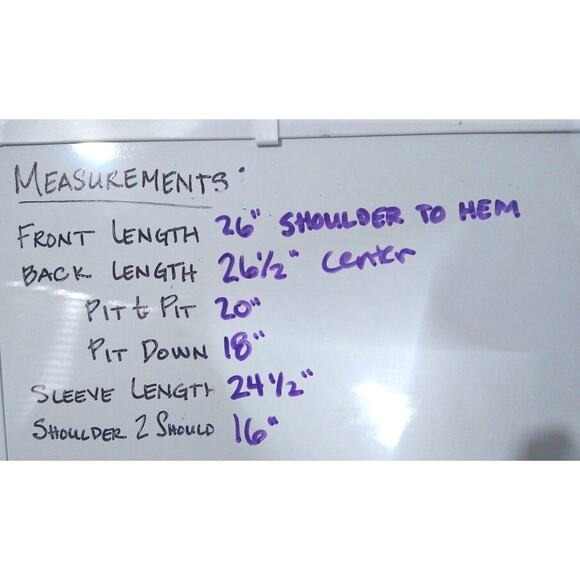 MEASUREMENTS:
FRONT LENGTH 26" SHOULDER TO HEM
BACK LENGTH 26 1/2" Center
PIT to PIT 20"
PIT DOWN 18"
SLEEVE LENGTH 24 1/2"
SHOULDER 2 SHOULD 16"